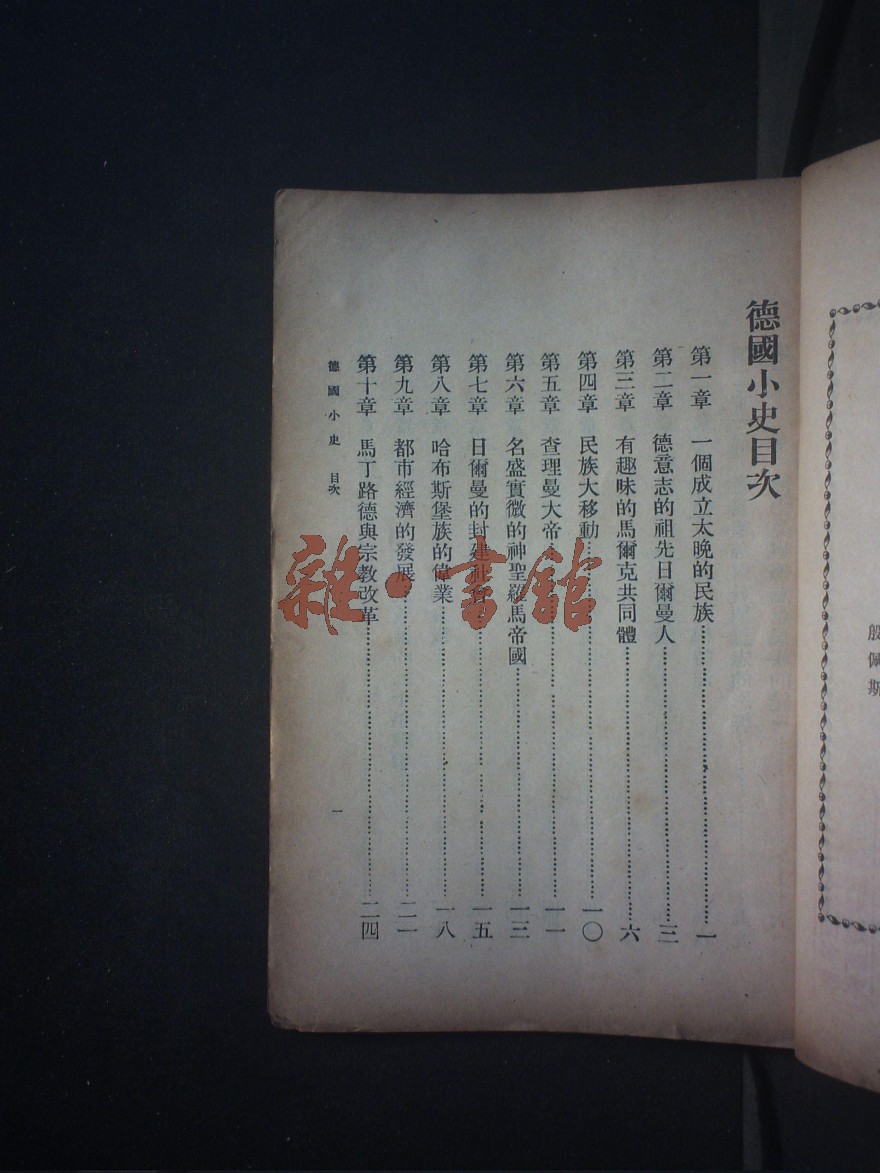 德國小史目次
第一章 一個成立太晚的民族⋯⋯一
第二章 德意志的祖先日爾曼人⋯⋯三
第三章 有趣味的馬爾克共同體⋯⋯六
第四章 民族大移動⋯⋯一〇
第五章 查理曼大帝⋯⋯一一
第六章 名盛實微的神聖羅馬帝國⋯⋯一三
第七章 日爾曼的封建社⋯⋯一五
第八章 哈布斯堡族的偉業⋯⋯一八
第九章 都市經濟的發展⋯⋯二一
第十章 馬丁路德與宗教改革⋯⋯二四
德國小史 目次
一
殷佩斯
雜·書館